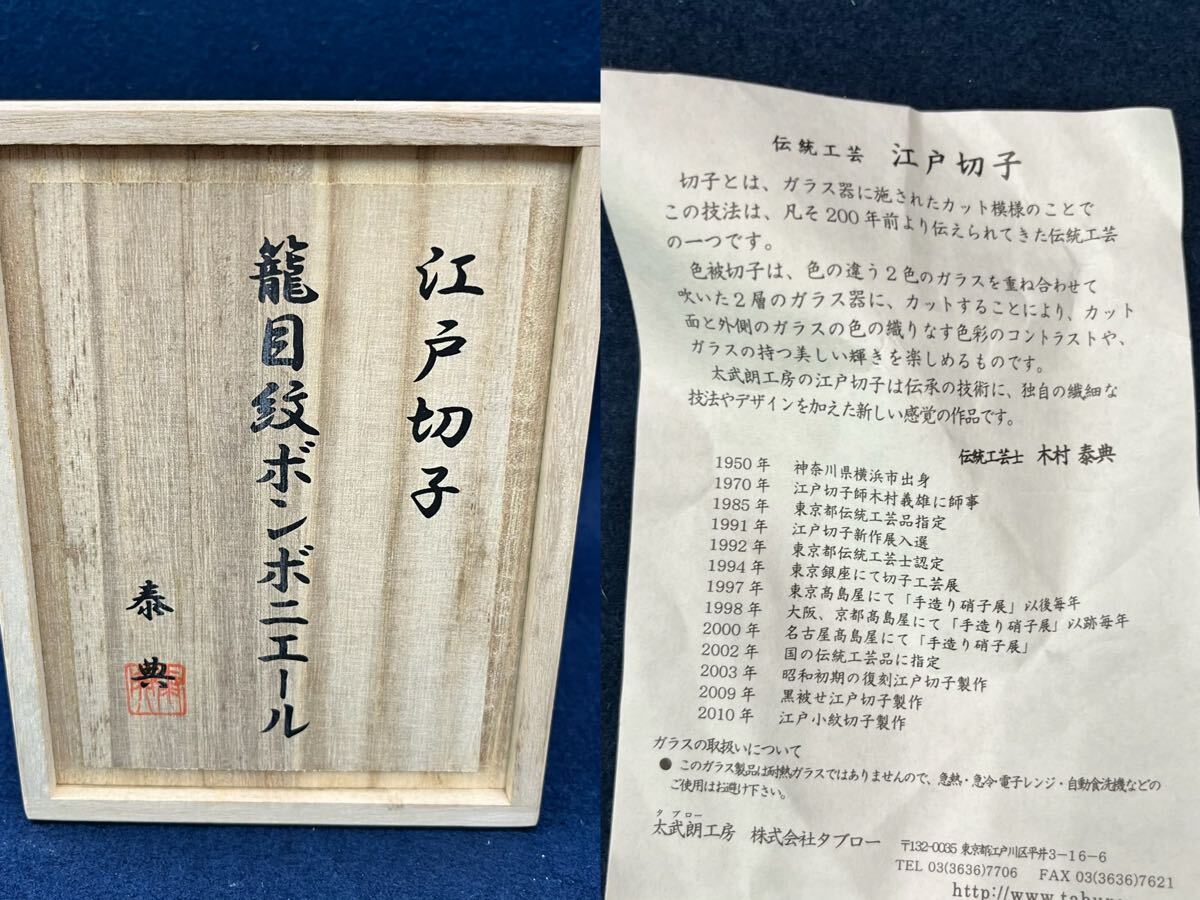 江戸切子
籠目紋ボンボニエール
泰典
伝統工芸 江戸切子
切子とは、ガラス器に施されたカット模様のことで
この技法は、凡そ200年前より伝えられてきた伝統工芸
の一つです。
色被切子は、色の違う2色のガラスを重ね合わせて
吹いた2層のガラス器に、カットすることにより、カット
面と外側のガラスの色の織りなす色彩のコントラストや、
ガラスの持つ美しい輝きを楽しめるものです。
太武朗工房の江戸切子は伝承の技術に、独自の繊細な
技法やデザインを加えた新しい感覚の作品です。
伝統工芸士 木村 泰典
1950年 神奈川県横浜市出身
1970年 江戸切子師木村義雄に師事
1985年 東京都伝統工芸品指定
1991年 江戸切子新作展入選
1992年 東京都伝統工芸士認定
1994年 東京銀座にて切子工芸展
1997年 東京高島屋にて「手造り硝子展」以後毎年
1998年 大阪、京都高島屋にて「手造り硝子展」以跡毎年
2000年 名古屋高島屋にて「手造り硝子展」
2002年 国の伝統工芸品に指定
2003年 昭和初期の復刻江戸切子製作
2009年 黒被せ江戸切子製作
2010年 江戸小紋切子製作
ガラスの取扱いについて
● このガラス製品は耐熱ガラスではありませんので、急熱・急冷・電子レンジ・自動食洗機などの
ご使用はお避け下さい。
タブロー
太武朗工房 株式会社タブロー 〒132-0035 東京都江戸川区平井3-16-6
TEL 03(3636)7706 FAX 03(3636)7621
http://www.tabur